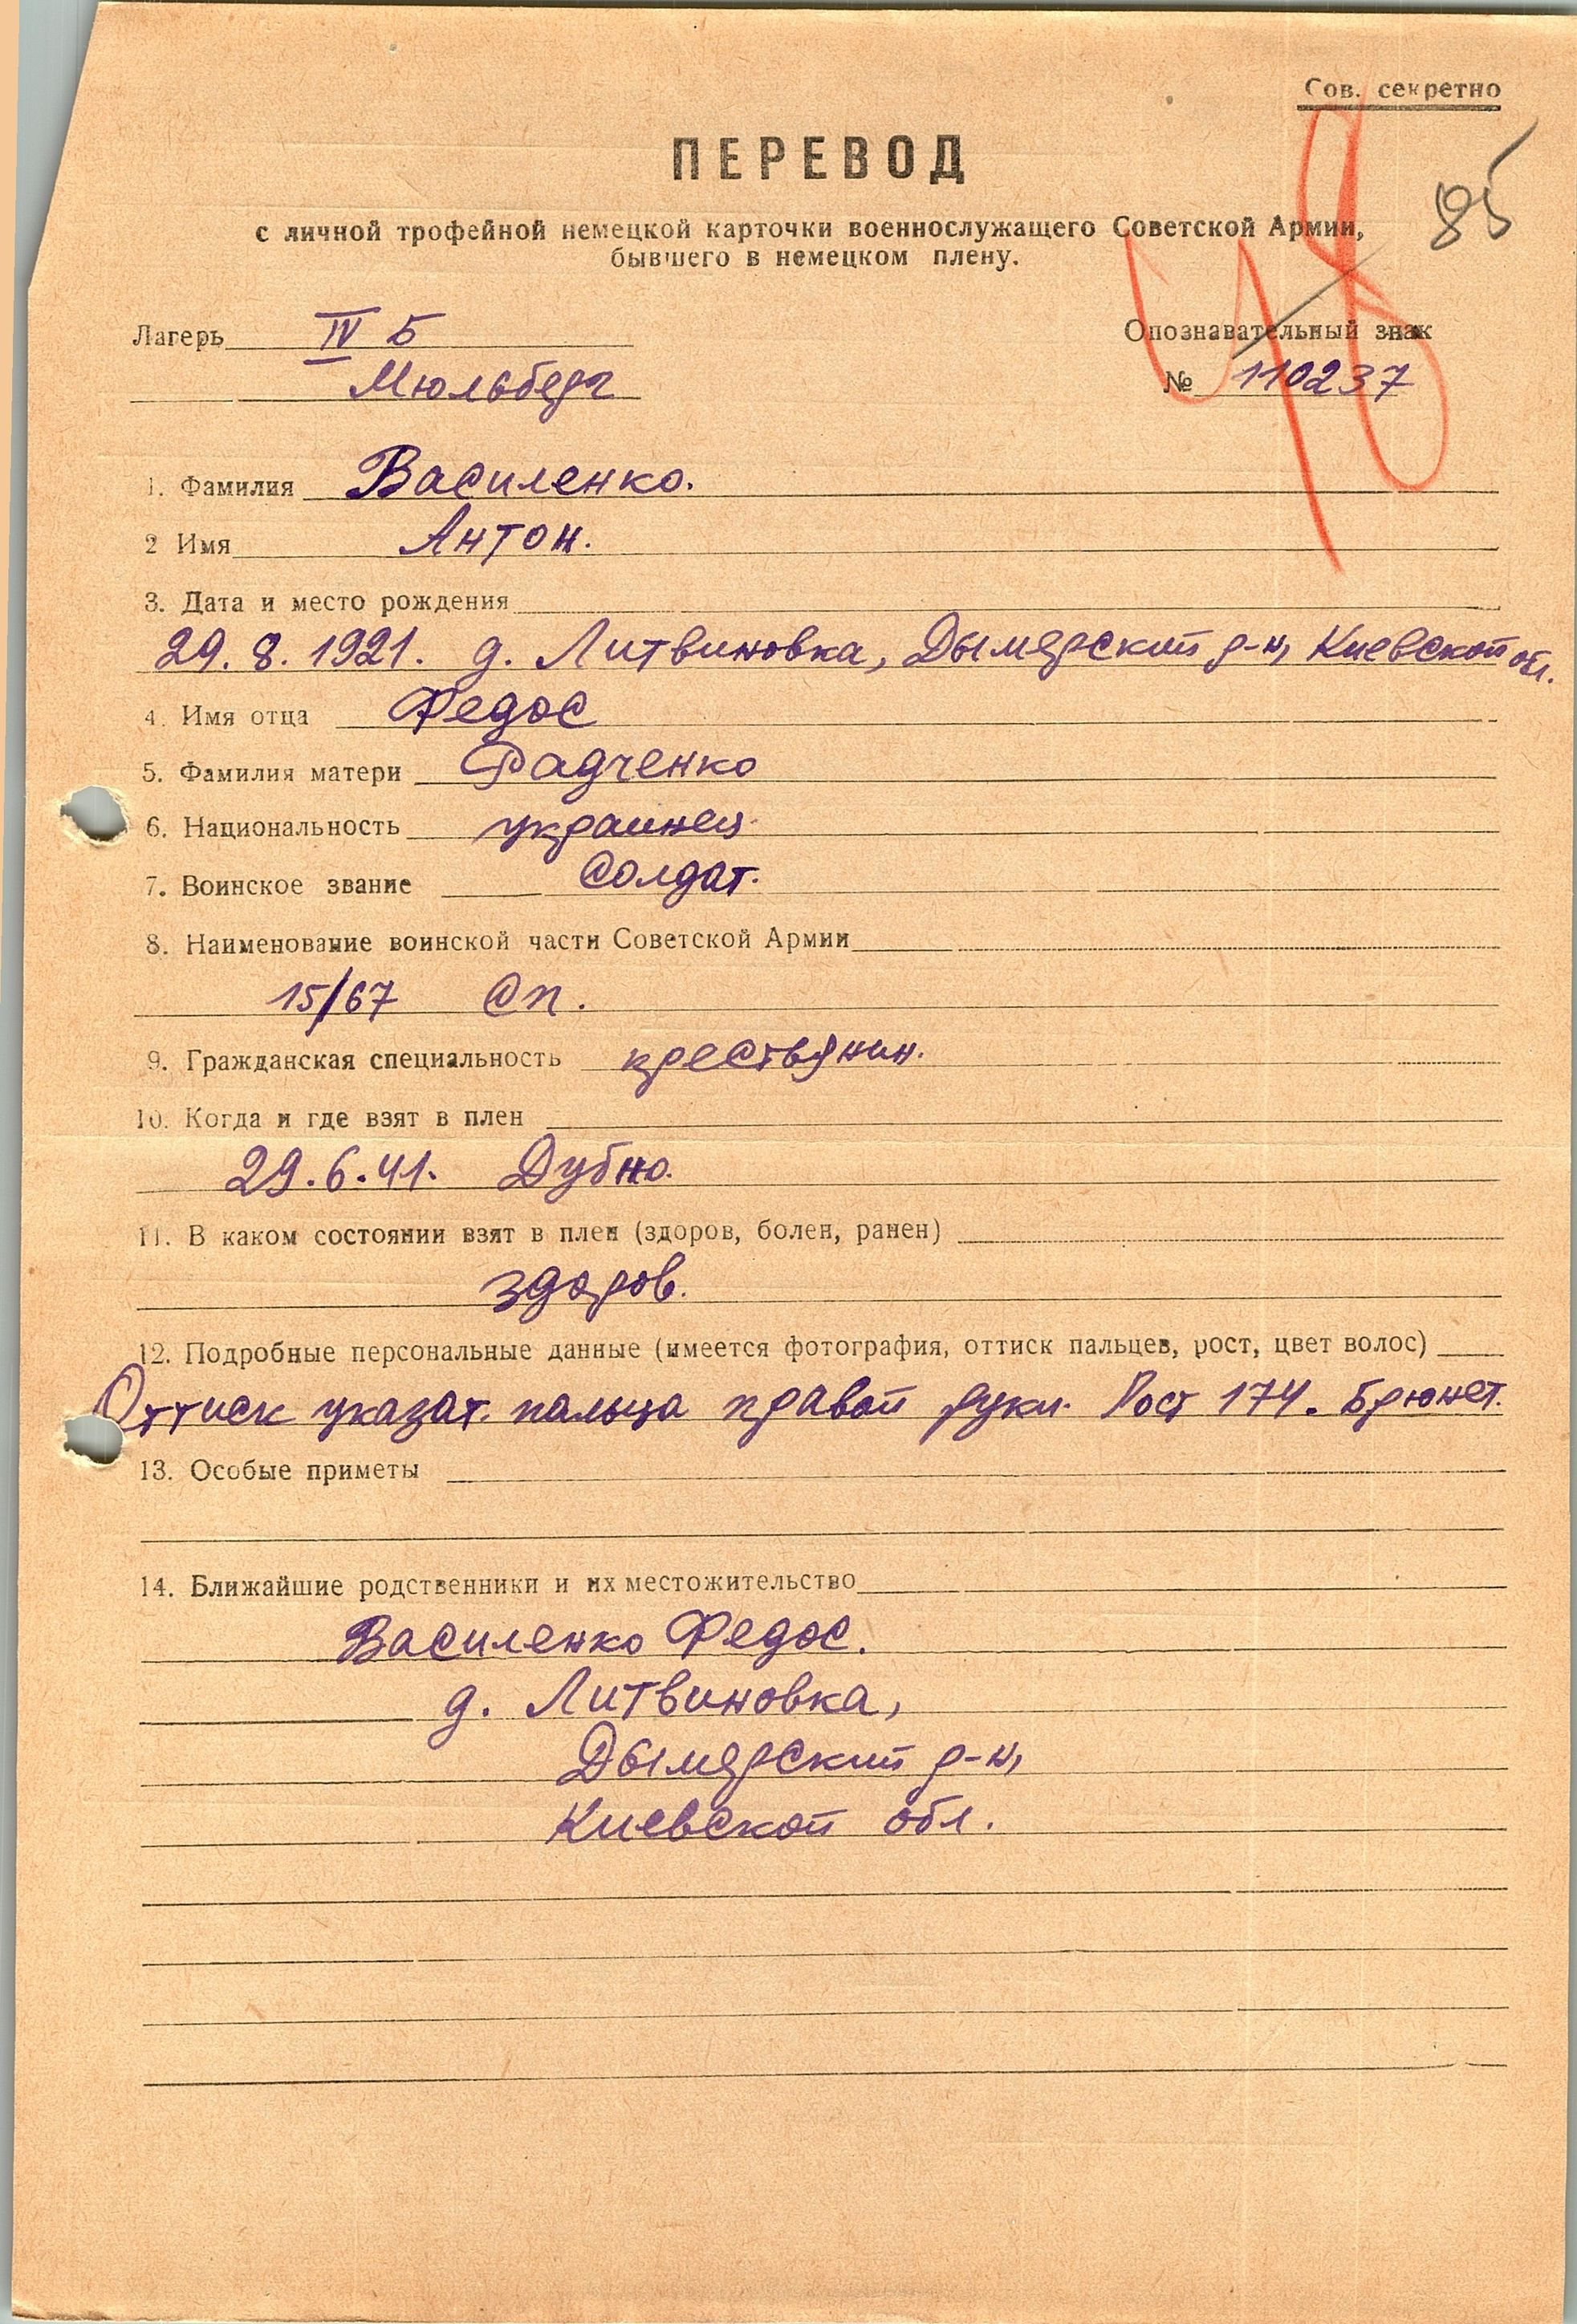 Сов. секретно
85
ПЕРЕВОД
с личной трофейной немецкой карточки военнослужащего Советской Армии,
бывшего в немецком плену.
Лагерь IV Б
Мюльберг
Опознавательный знак
№ 110237
1. Фамилия Василенко.
2 Имя Антон.
3. Дата и место рождения
29.8.1921. д. Литвиновка, Дымерский р-н, Киевской обл.
4. Имя отца Федос
5. Фамилия матери Радченко
6. Национальность украинец.
7. Воинское звание Солдат.
8. Наименование воинской части Советской Армии
15/67 Сп.
9. Гражданская специальность крестьянин.
10. Когда и где взят в плен
29.6.41. Дубно.
11. В каком состоянии взят в плен (здоров, болен, ранен)
здоров.
12. Подробные персональные данные (имеется фотография, оттиск пальцев, рост, цвет волос)
Оттиск указат. пальца правой руки. Рост 174. Брюнет.
13. Особые приметы
14. Ближайшие родственники и их местожительство
Василенко Федос.
д. Литвиновка,
Дымерский р-н,
Киевской обл.